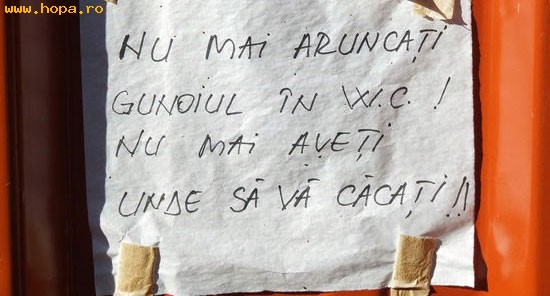 www.hopa.ro
NU MAI ARUNCAȚI
GUNOIUL ÎN W.C. !
NU MAI AVEȚI
UNDE SĂ VĂ CĂCAȚI!!